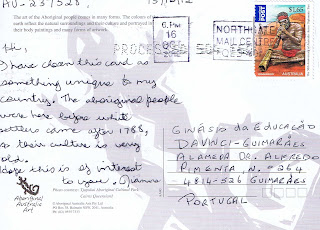 AU-237528
13/10/12
The art of the Aboriginal people comes in many forms. The colours of the
earth reflect the natural surroundings and their culture and portrayed in
their body paintings and many forms of artwork.
6.PM
16
NORTHGATE
MAIL CENTRE
PROCESSED
POST
$1.65
AUSTRALIA
Hi,
I have chosen this card as
something unique to my
country. The aboriginal people
were here before white
settlers came after 1788,
so their culture is very
old.
Hope this is of interest
to you. Dianne
Aboriginal
Australia
Art
GINÁSIO da EDUCAÇÃO
DAVINCI-GUIMARÃES
ALAMEDA DR. ALFREDO
PIMENTA N. 264
4814-526 GUIMARÃES
PORTUGAL
Cairns Queensland
© Aboriginal Australia Art Pty Ltd